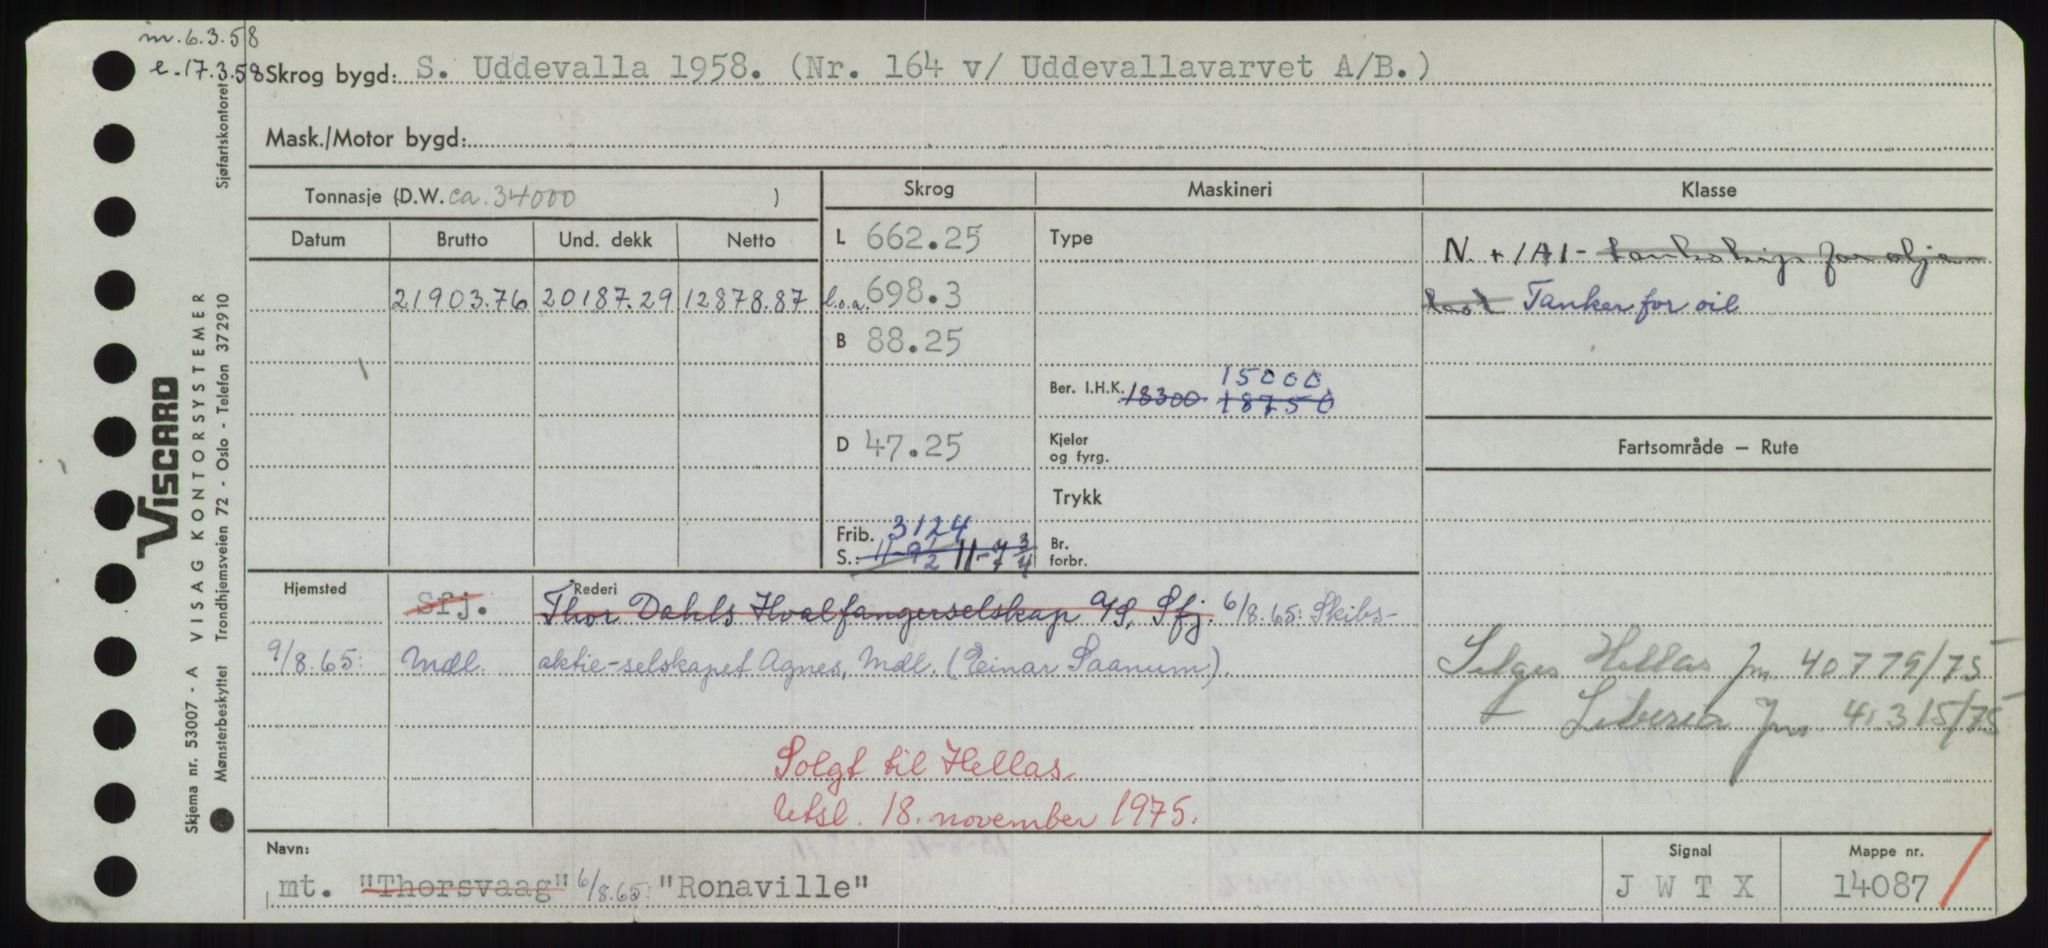 m. 6.3.58
e. 17.3.58 Skrog bygd: S. Uddevalla 1958. (Nr. 164 v/ Uddevallavarvet A/B.)
Sjøfartskontoret
Mask./Motor bygd:
Tonnasje (D.W. ca. 34000 )
Skrog
Maskineri
Klasse
Datum Brutto Und. dekk Netto
L 662.25
Type
N. + 1A1 - tankskip for olje-
21903.76 20187.29 12878.87
l.o.a. 698.3
last Tanker for oil
B 88.25
Ber. I.H.K. 18300 18750 15000
D 47.25
Kjeler
og fyrg.
Fartsområde – Rute
Trykk
Frib. 3124
S.: 11-9 1/2 11-7 3/4
Br.
forbr.
Hjemsted
Rederi
Sfj. Thor Dahls Hvalfangerselskap A/S, Sfj. 6/8.65: Skibs-
9/8.65: Mdl. aktie-selskapet Agnes, Mdl. (Einar Saanum).
Selges Hellas jnr. 40779/75
Liberia jnr. 41315/75
Solgt til Hellas
Utsl. 18. november 1975.
Navn:
mt. "Thorsvaag" 6/8.65: "Ronaville"
Signal
J W T X
Mappe nr.
14087
VISCARD
VISAG KONTORSYSTEMER
Skjema nr. 53007 - A
Mønsterbeskyttet Trondhjemsveien 72 - Oslo - Telefon 372910